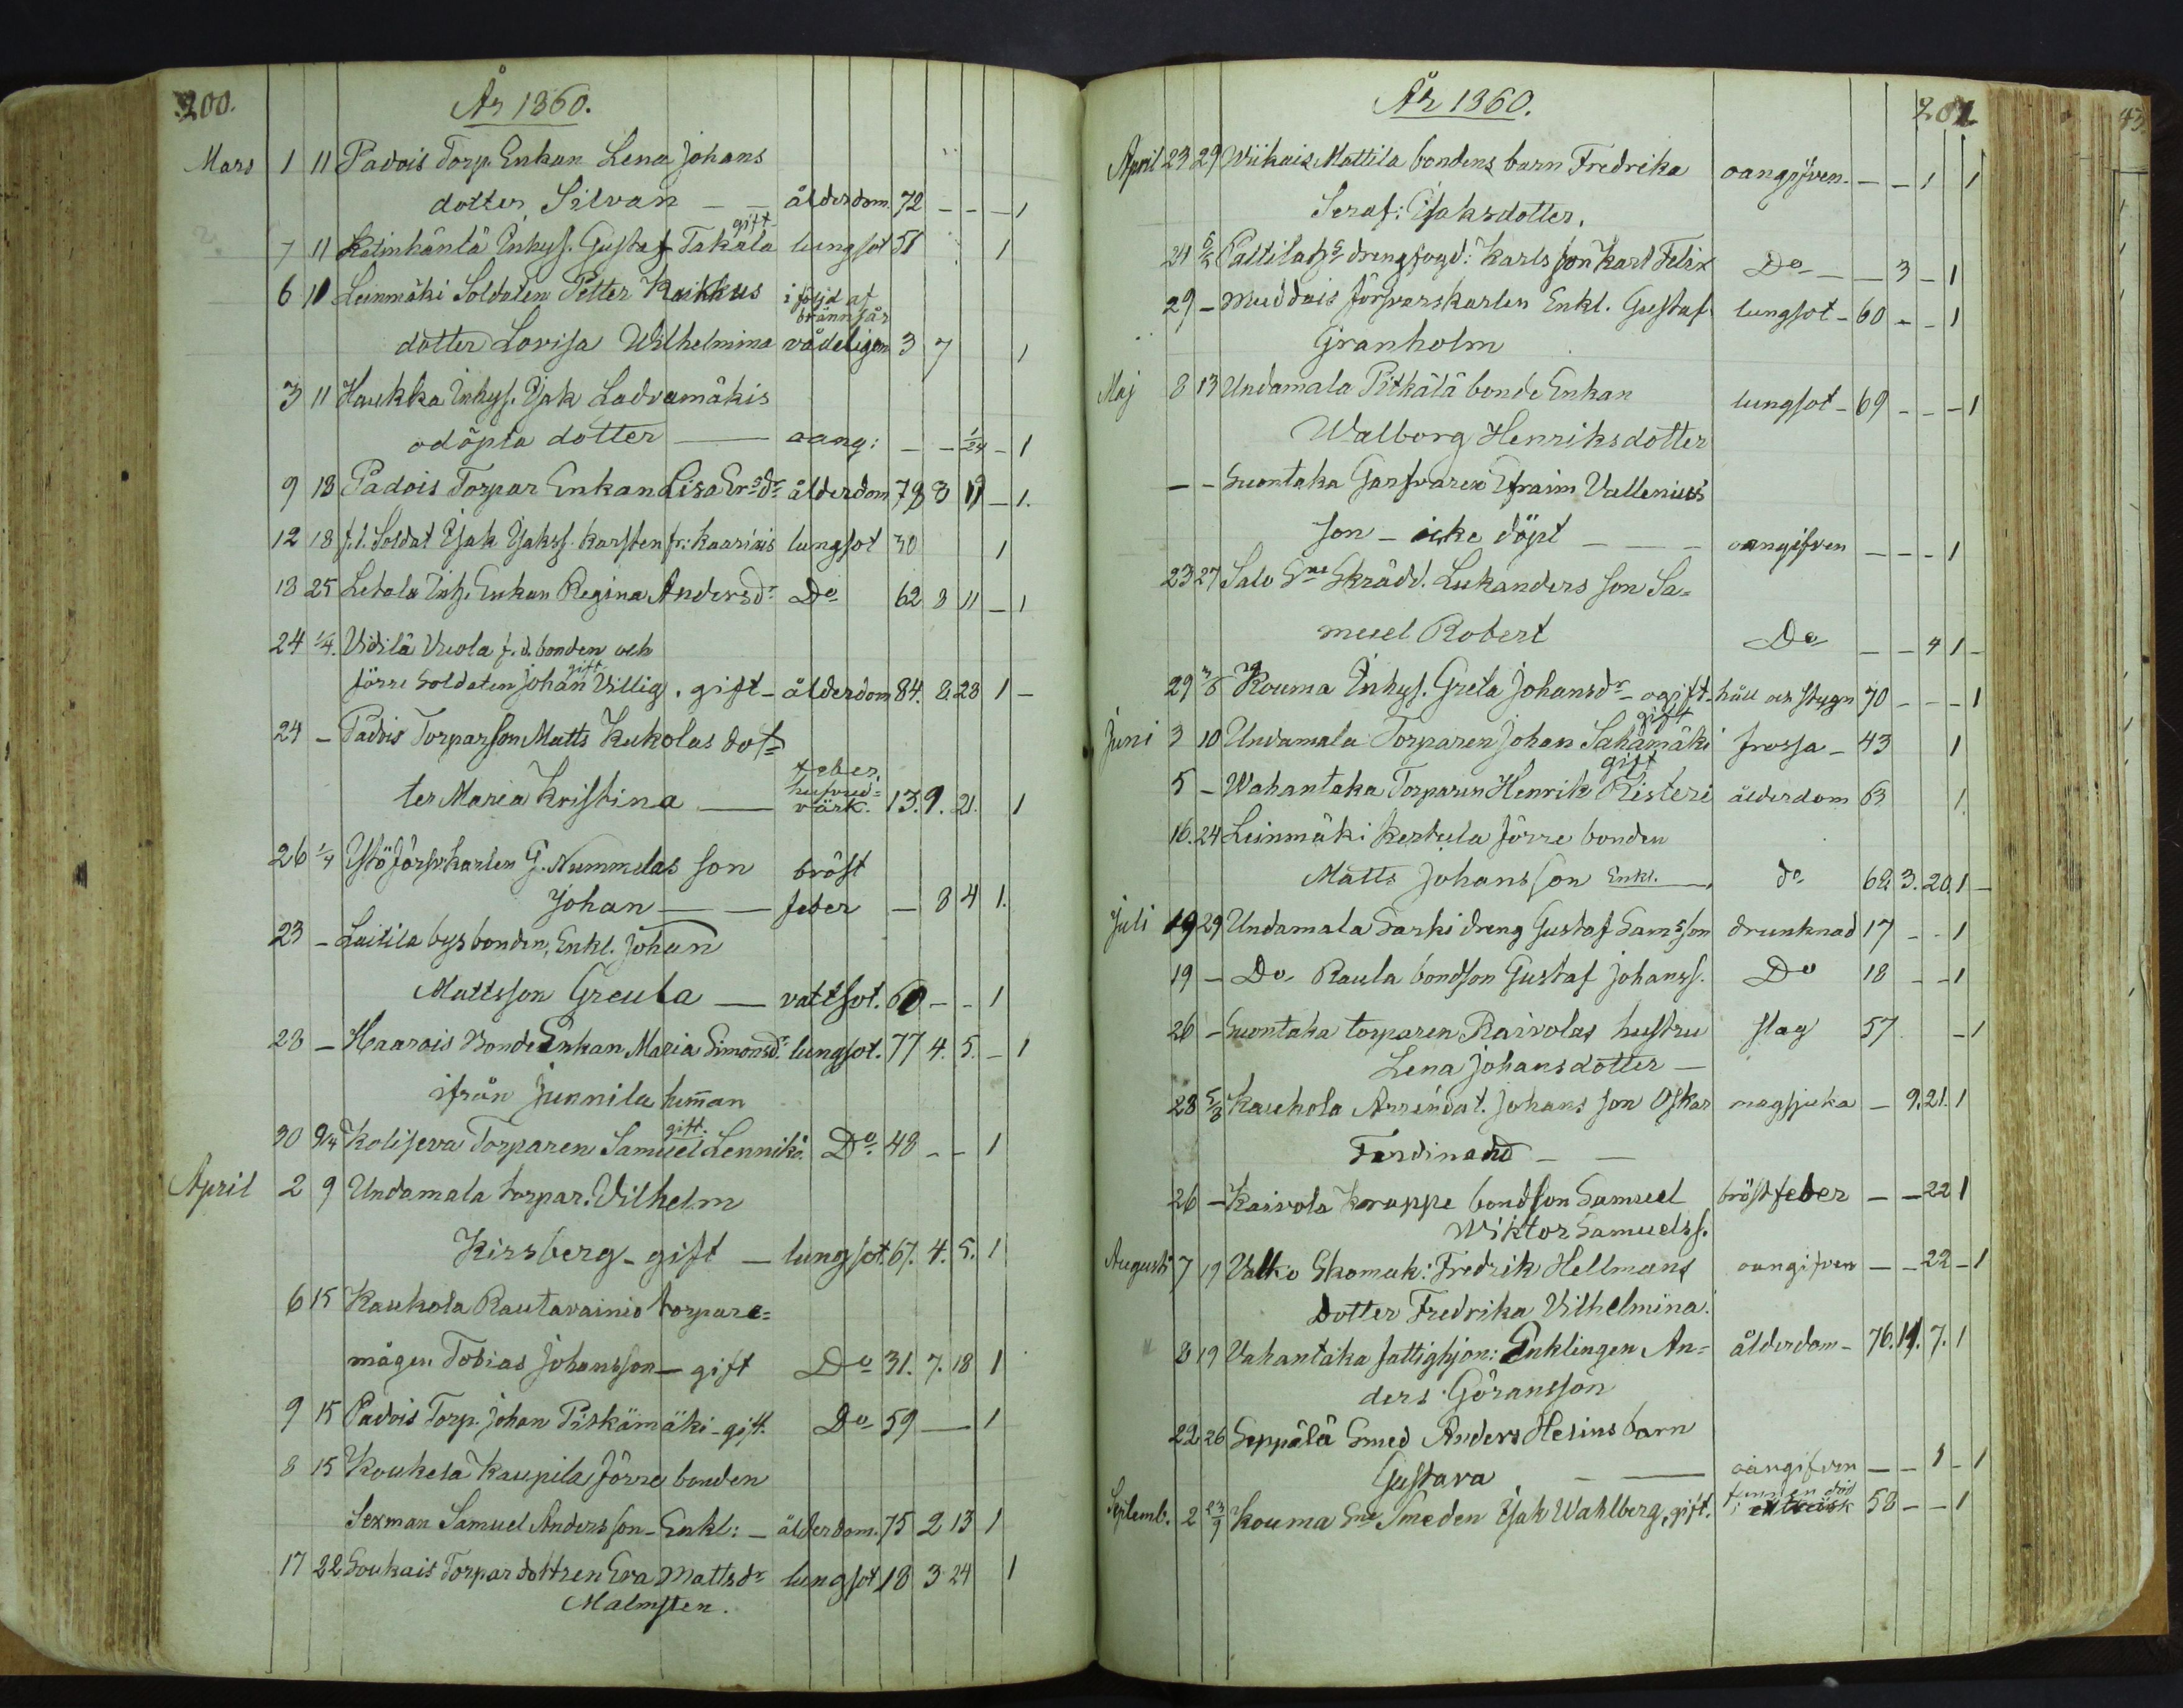 200.
År 1860.
Mars 1 11 Padois Torp. Enkan Lena Johans
dotter Silvan — — ålderdom. 72 — — — 1
gift
7 11 Katinhäntä Inhys. Gustaf Takala lungsot 51 1
6 11 Leinmäki Soldaten Petter Kaikkus i följd af
brännsår
dotter Lovisa Wilhelmina vådeligen 3 7 1
3 11 Haukka Inhys. Isak Ladvamäkis
odöpta dotter — oang: — — 1/24 — 1
9 18 Padois Torpar Enkan Lisa Ersdr ålderdom 78 3 11 — 1.
12 18 f.d. Soldat Isak Isakss. Karsten fr: Kaariais lungsot 30 1
18 25 Letala Inh. Enkan Regina Andersdr Do 62 8 11 — 1
24 1/4. Vidilä Uvola f.d. bonden och
gift
förre Soldaten Johan Villig. gift — ålderdom 84. 8. 28 1 —
24 — Padois Torparson Matts Kukolas dot=
feber,
hufvud=
ter Maria Kristina — värk. 13. 9. 21. 1
26 1/4 Ystö Försv.karlen G. Nummelas son bröst
Johan — — feber — 8 4 1.
23 — Laitila bys bonden, Enkl. Johan
Mattsson Greula — vattsot. 60 — — 1
28 — Haarois Bonde Enkan Maria Simonsdr. lungsot. 77 4. 5. — 1
ifrån Junnila hemman
gift.
30 9/4 Kolijeva Torparen Samuel Lennikä. Do 48 — — 1
April 2 9 Undamala torpar. Vilhelm
Kirsberg — gift — lungsot. 67. 4. 5. 1
6 15 Kaukola Rautavainio torpare=
mågen Tobias Johansson — gift Do 31. 7. 18 1
9 15 Padois Torp. Johan Pitkämäki — gift. Do 59 — 1
8 15 Koukela Kaupila förre bonden
Sexman Samuel Andersson — Enkl: — ålderdom. 75 2 13 1
17 22 Soukais Torpardottren Eva Mattsdr lungsot 18 3 24 1
Malmsten.
År 1860.
201
43.
April 23 29 Wiikais Mattila bondens barn Fredrika oangifven. — — 1 1
Seraf: Isaksdotter.
24 6/5 Palttila drengfogd: Karls son Karl Felix Do — — 3 — 1
29 — Muddais försvarskarlen Enkl. Gustaf lungsot — 60 — — 1
Granholm
Maj 8 13 Undamala Pitkälä bonde Enkan lungsot — 69 — — — 1
Walborg Henriksdotter
— — Suontaka Garfvaren Efraim Vallenius
son — icke döpt — — oangifven — — — 1
23 27 Salo Sne Skrädd. Lukanders son Sa=
muel Robert Do — — 4 1 —
29 3/6 Kouma Inhys. Greta Johansdr — ogift — håll och stygn 70 — — — 1
gift
Juni 3 10 Undamala Torparen Johan Sahamäki frossa — 43 1
gift
5 — Wahantaka Torparen Henrik Risteri ålderdom 63 1
16. 24 Leinmäki Kertula förre bonden
Matts Johansson Enkl. — do 62. 3. 20. 1 —
Juli 19 29 Undamala Sarki dreng Gustaf Samsson drunknad 17 — — 1
19 — Do Raula bondson Gustaf Johanss. Do 18 — — 1
26 — Suontaka torparen Raivolas hustru slag 57 — 1
Lena Johansdotter —
28 5/8 Kaukola Arrendat. Johans son Oskar magsjuka — 9. 21. 1
Ferdinand — —
26 — Kaivola Krappe bondson Samuel bröstfeber — — 22 1
Wiktor Samuelss.
Augusti 7 19 Valko Skomak: Fredrik Hellmans oangifven — — 22 — 1
Dotter Fredrika Vilhelmina.
8 19 Vahantaka fattighjon: Enklingen An= ålderdom — 76. 11. 7. 1
ders Göransson
22 26 Seppälä Smed Anders Helins barn
Gustava — — oangifven — — 1 — 1
funnen död
Septemb. 2 23/9 Kouma Sne Smeden Isak Wahlberg, gift. i 58 — — 1